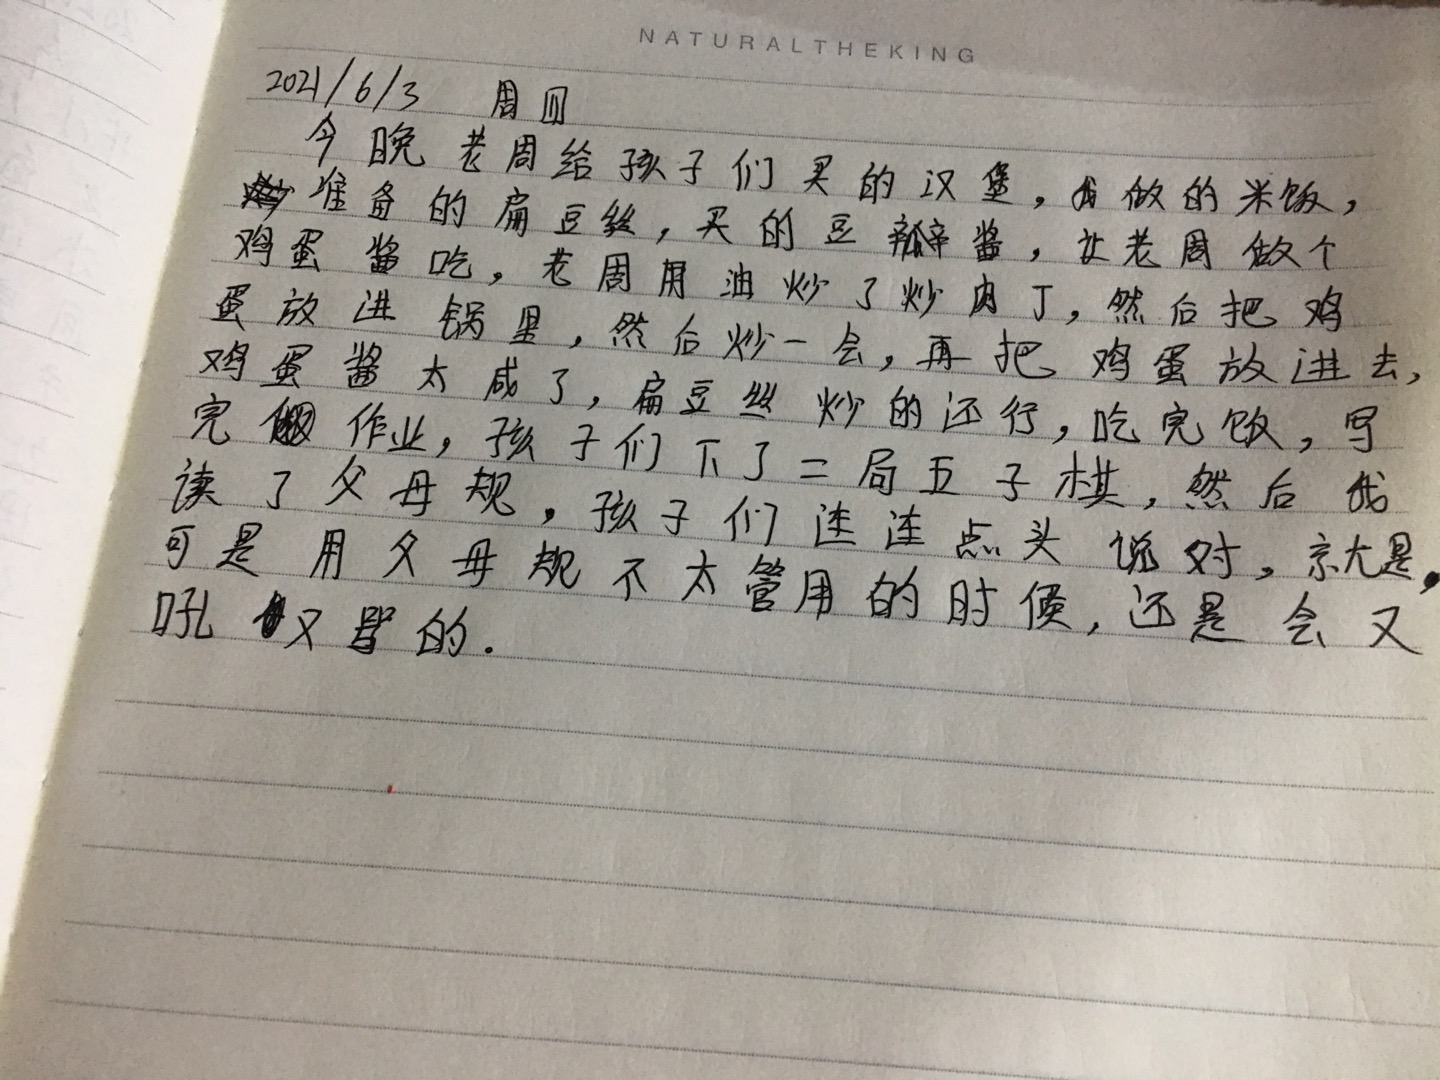 NATURALTHEKING
2021/6/3 周四
今晚老周给孩子们买的汉堡，我做的米饭，
准备的扁豆丝，买的豆瓣酱，让老周做个
鸡蛋酱吃，老周用油炒了炒肉丁，然后把鸡
蛋放进锅里，然后炒一会，再把鸡蛋放进去，
鸡蛋酱太咸了，扁豆丝炒的还行，吃完饭，写
完作业，孩子们下了二局五子棋，然后我
读了父母规，孩子们连连点头说对，就是，
可是用父母规不太管用的时候，还是会又
吼又骂的.